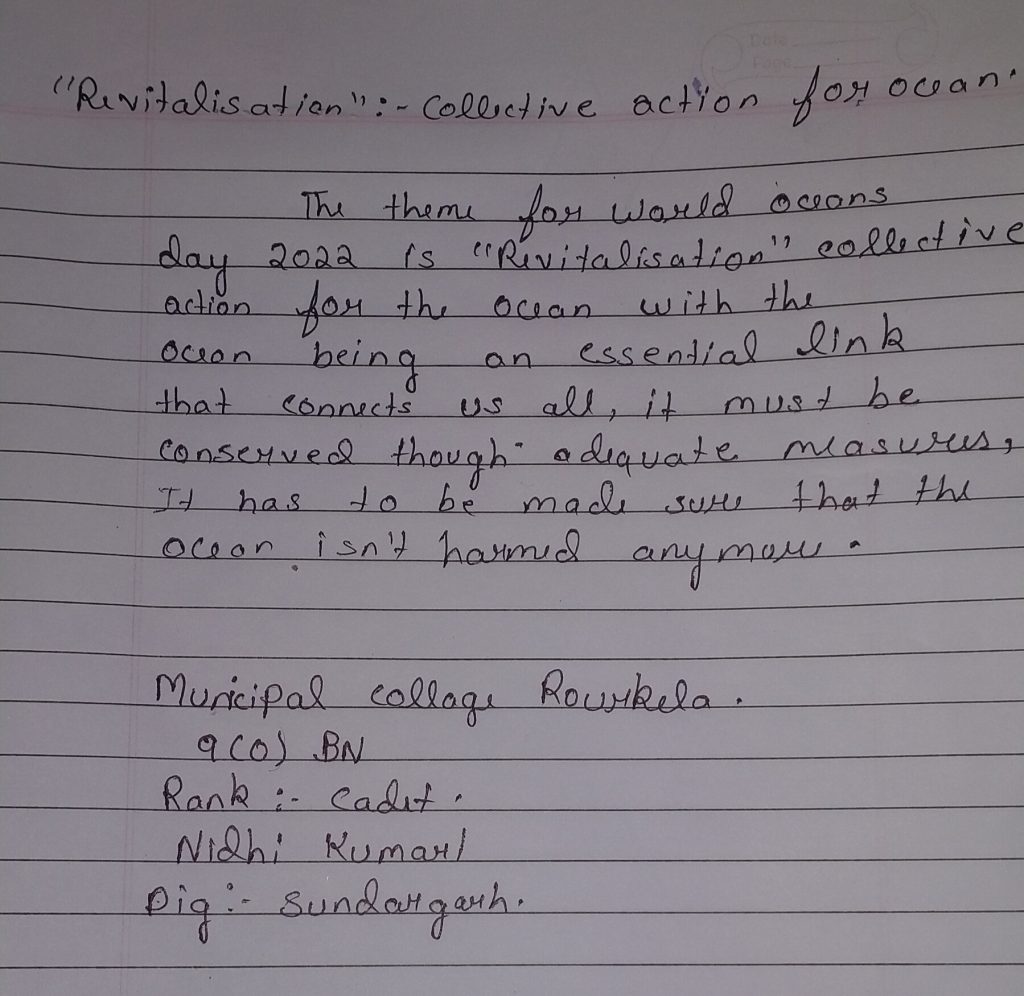 Date
Page
"Revitalisation":- Collective action for ocean.
The theme for world oceans
day 2022 is "Revitalisation" collective
action for the ocean with the
ocean being an essential link
that connects us all, it must be
conserved though adequate measures,
It has to be made sure that the
ocean isn't harmed anymore.
Municipal collage Rourkela.
9(O) BN
Rank :- Cadet.
Nidhi Kumari
Dig :- Sundargarh.